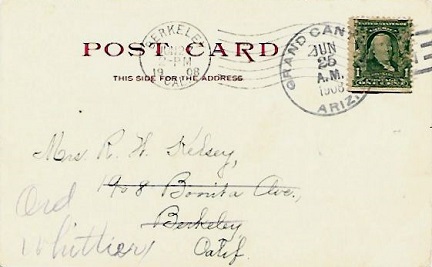 BERKELEY
2-PM
1908
CAL.
GRAND CAN
JUN
25
A.M.
1908
ARIZ.
1
POST CARD
THIS SIDE FOR THE ADDRESS
Mrs R. W. Kelsey,
1908 Bonita Ave.,
Berkeley
Calif.
Ord
Whittier